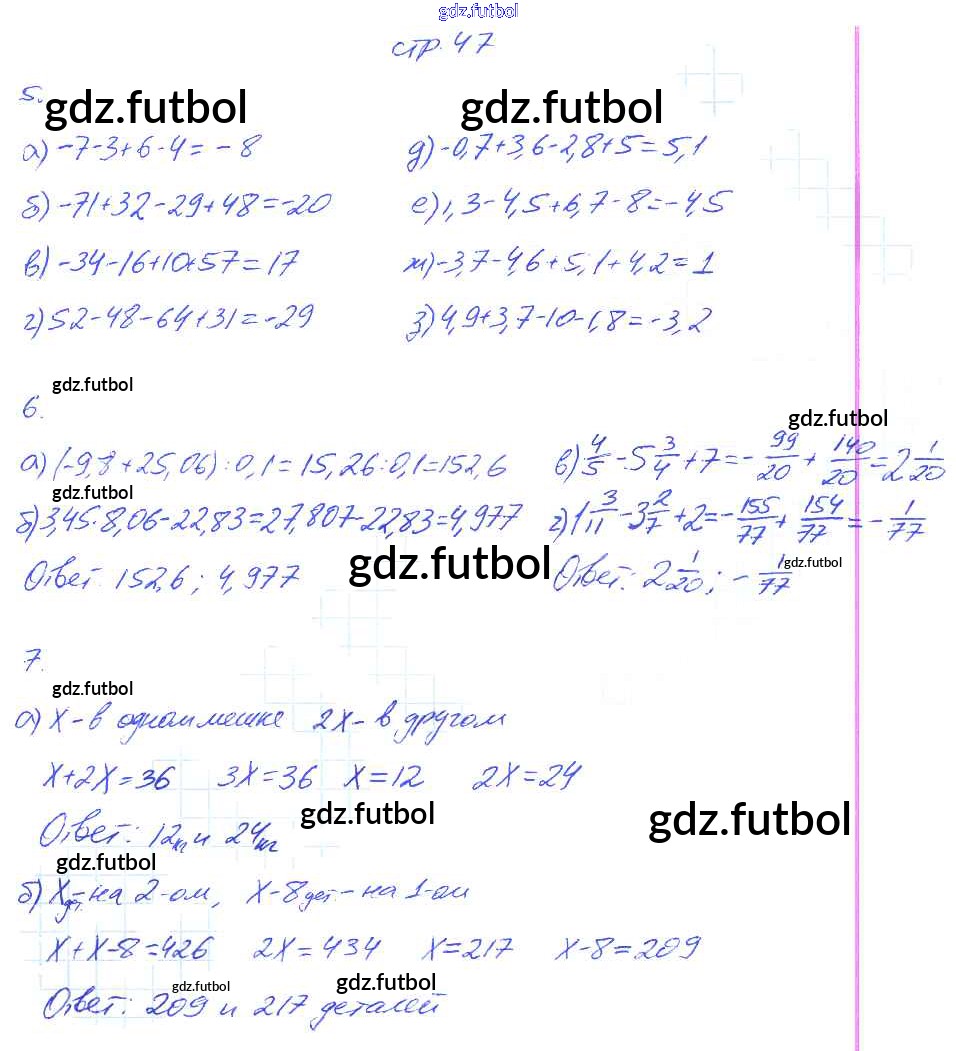 gdz.futbol
стр. 47
5.
gdz.futbol gdz.futbol
а) -7-3+6-4 = -8 д) -0,7+3,6-2,8+5=5,1
б) -71+32-29+48=-20 е) 1,3-4,5+6,7-8=-4,5
в) -34-16+10+57=17 ж) -3,7-4,6+5,1+4,2=1
г) 52-48-64+31=-29 з) 4,9+3,7-10-1,8=-3,2
gdz.futbol
6.
gdz.futbol
а) (-9,8+25,06):0,1=15,26:0,1=152,6 в) 4/5 - 5 3/4 + 7 = - 99/20 + 140/20 = 2 1/20
gdz.futbol
б) 3,45·8,06-22,83=27,807-22,83=4,977 г) 1 3/11 - 3 2/7 + 2 = - 155/77 + 154/77 = - 1/77
Ответ: 152,6; 4,977 gdz.futbol Ответ: 2 1/20; - 1/77 gdz.futbol
7.
gdz.futbol
а) x - в одном мешке 2x - в другом
x+2x=36 3x=36 x=12 2x=24
gdz.futbol gdz.futbol
Ответ: 12 кг и 24 кг
gdz.futbol
б) x дет. - на 2-ом, x-8 дет - на 1-ом
x+x-8=426 2x=434 x=217 x-8=209
gdz.futbol gdz.futbol
Ответ: 209 и 217 деталей